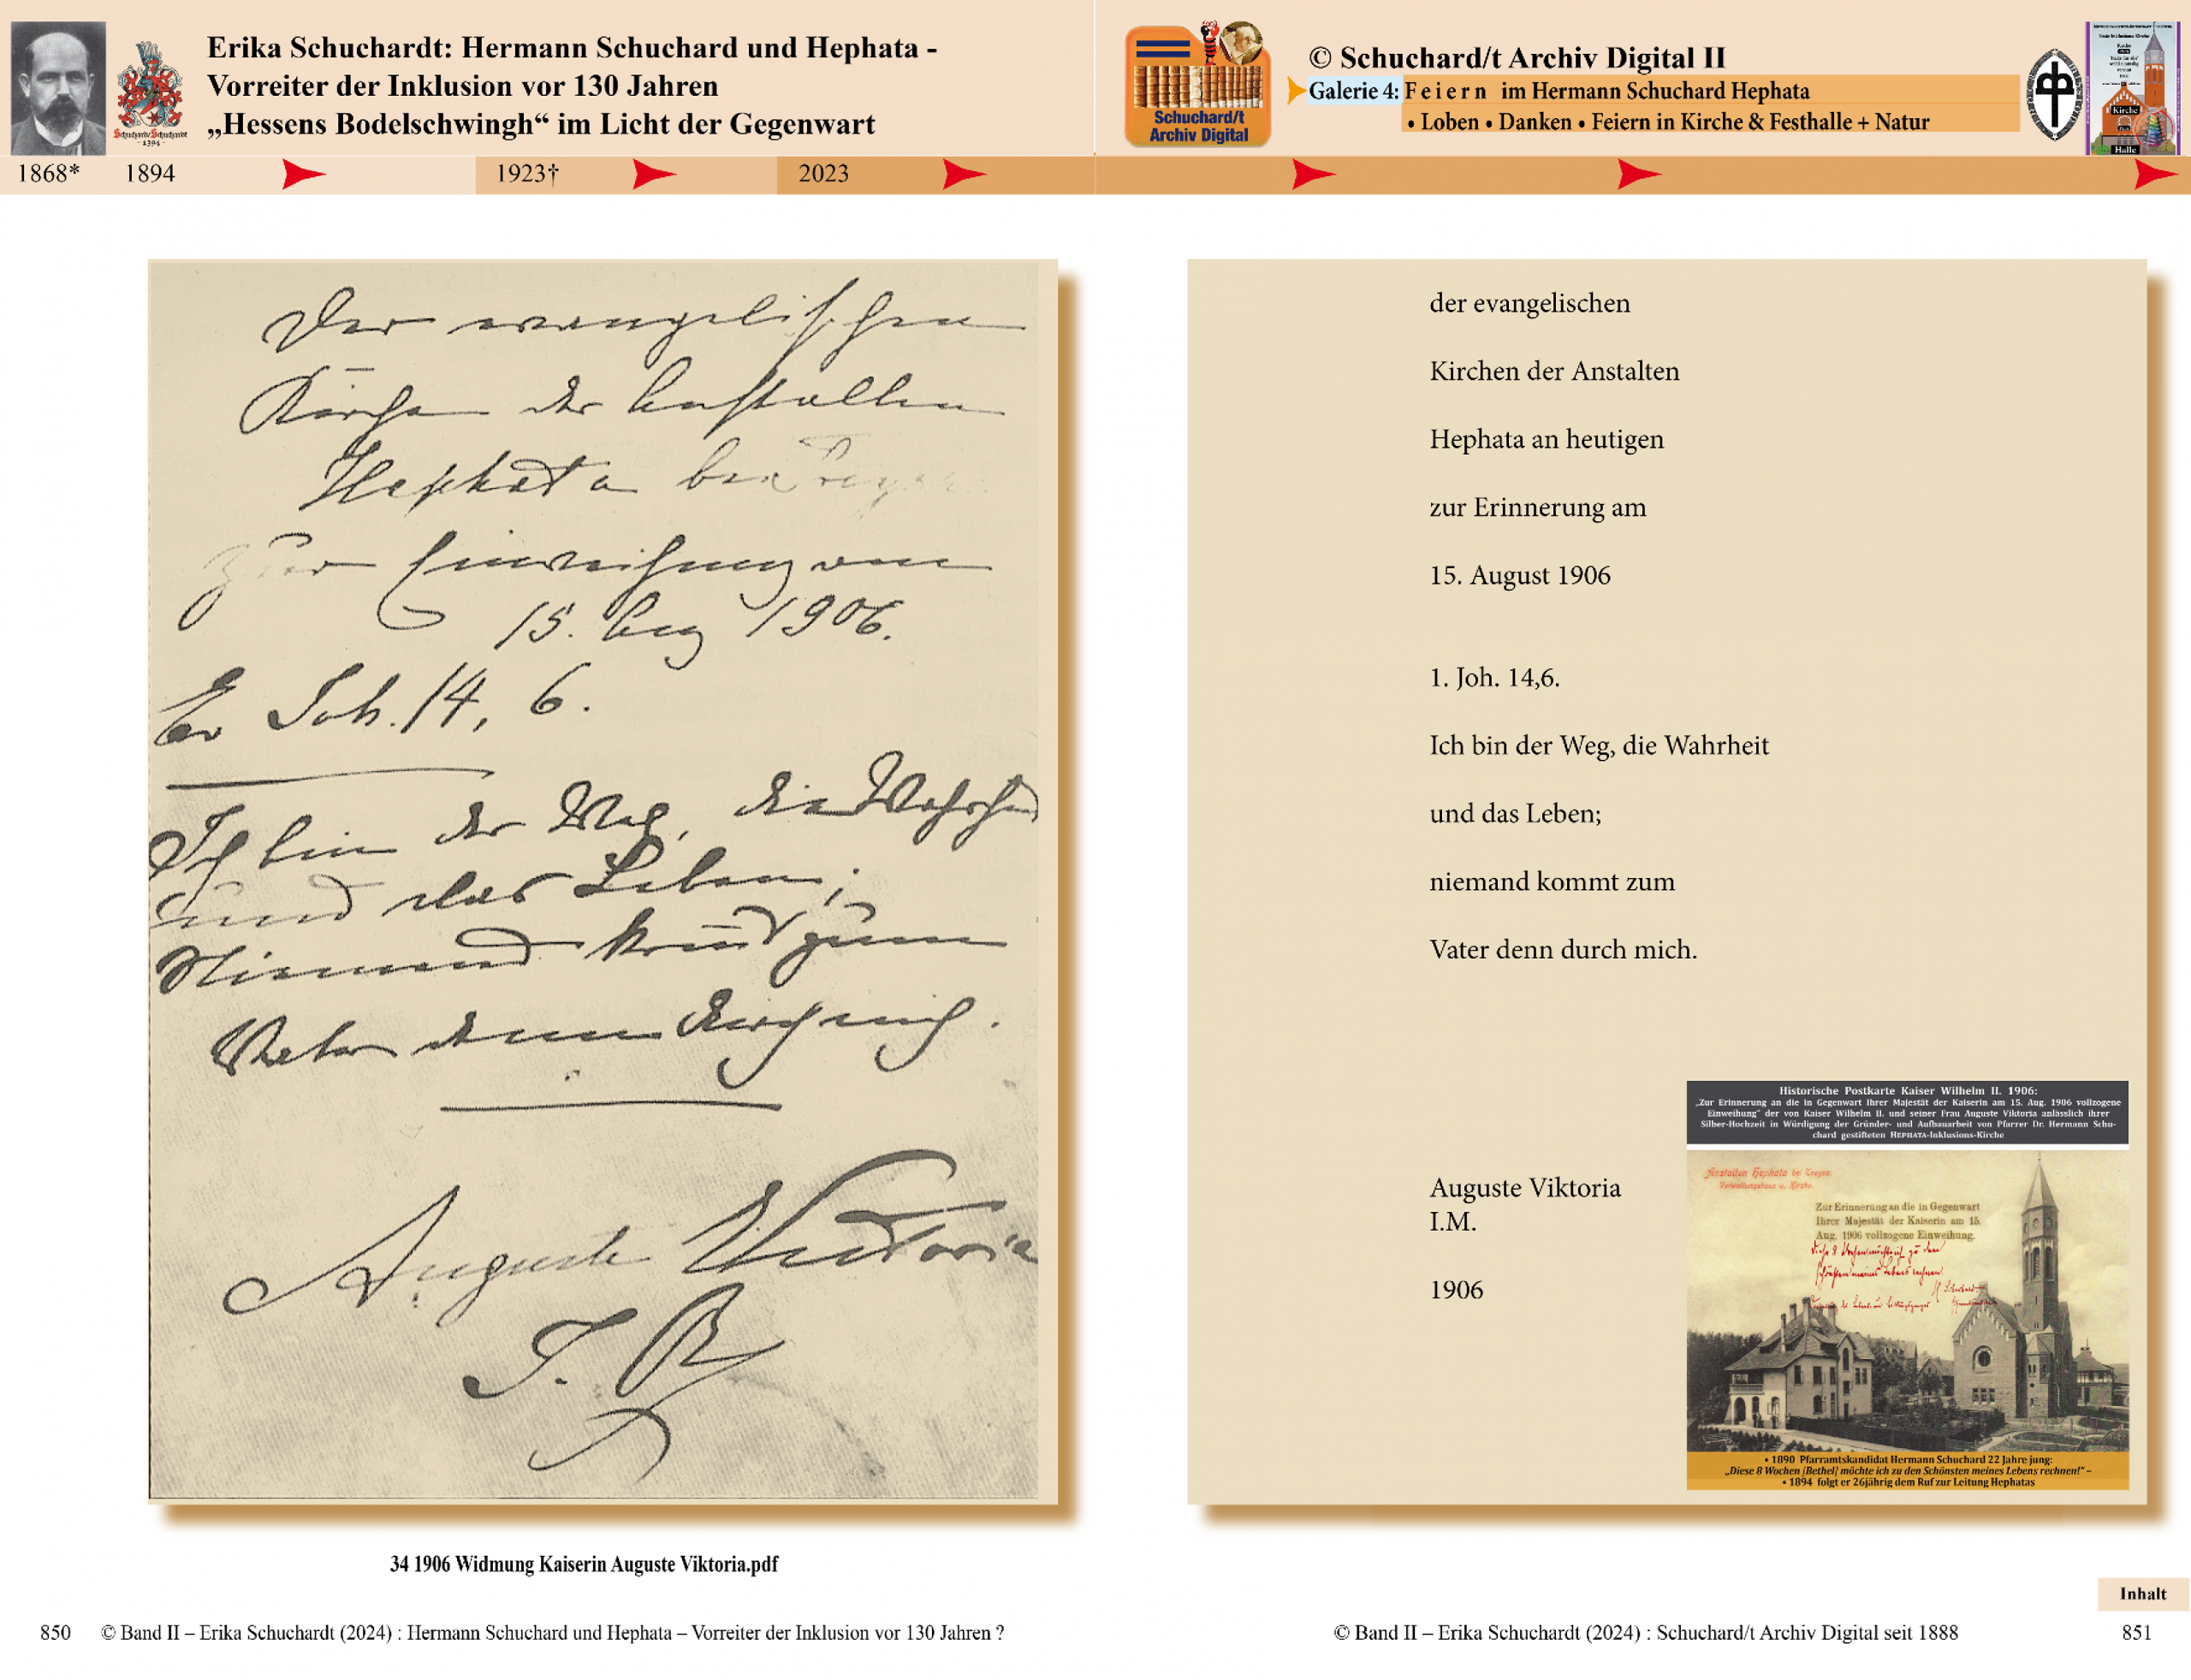 Erika Schuchardt: Hermann Schuchard und Hephata -
Vorreiter der Inklusion vor 130 Jahren
„Hessens Bodelschwingh“ im Licht der Gegenwart
Schuchard/t
Archiv Digital
© Schuchard/t Archiv Digital II
Galerie 4: Feiern im Hermann Schuchard Hephata
• Loben • Danken • Feiern in Kirche & Festhalle + Natur
Kirche
Halle
1868* 1894 1923† 2023
Der evangelischen
Kirche der Anstalten
Hephata bei Treysa
zur Einweihung am
15. Aug 1906.
Ev Joh. 14, 6.
Ich bin der Weg, die Wahrheit
und das Leben;
Niemand kom̅t zum
Vater denn durch mich.
Auguste Victoria
I. R
34 1906 Widmung Kaiserin Auguste Viktoria.pdf
850 © Band II – Erika Schuchardt (2024) : Hermann Schuchard und Hephata – Vorreiter der Inklusion vor 130 Jahren ?
der evangelischen
Kirchen der Anstalten
Hephata an heutigen
zur Erinnerung am
15. August 1906
1. Joh. 14,6.
Ich bin der Weg, die Wahrheit
und das Leben;
niemand kommt zum
Vater denn durch mich.
Auguste Viktoria
I.M.
1906
Historische Postkarte Kaiser Wilhelm II. 1906:
„Zur Erinnerung an die in Gegenwart Ihrer Majestät der Kaiserin am 15. Aug. 1906 vollzogene
Einweihung“ der von Kaiser Wilhelm II. und seiner Frau Auguste Viktoria anlässlich ihrer
Silber-Hochzeit in Würdigung der Gründer- und Aufbauarbeit von Pfarrer Dr. Hermann Schu-
chard gestifteten HEPHATA-Inklusions-Kirche
Anstalten Hephata bei Treysa.
Verwaltungshaus u. Kirche.
Zur Erinnerung an die in Gegenwart
Ihrer Majestät der Kaiserin am 15.
Aug. 1906 vollzogene Einweihung.
Diese 8 Wochen möchte ich zu den
Schönsten meines Lebens rechnen.
• 1890 Pfarramtskandidat Hermann Schuchard 22 Jahre jung:
„Diese 8 Wochen [Bethel] möchte ich zu den Schönsten meines Lebens rechnen!“ –
• 1894 folgt er 26jährig dem Ruf zur Leitung Hephatas
Inhalt
© Band II – Erika Schuchardt (2024) : Schuchard/t Archiv Digital seit 1888 851